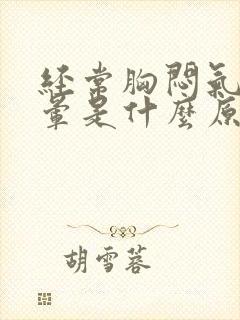 經常胸悶氣
暈是什麼原
胡雪蓉